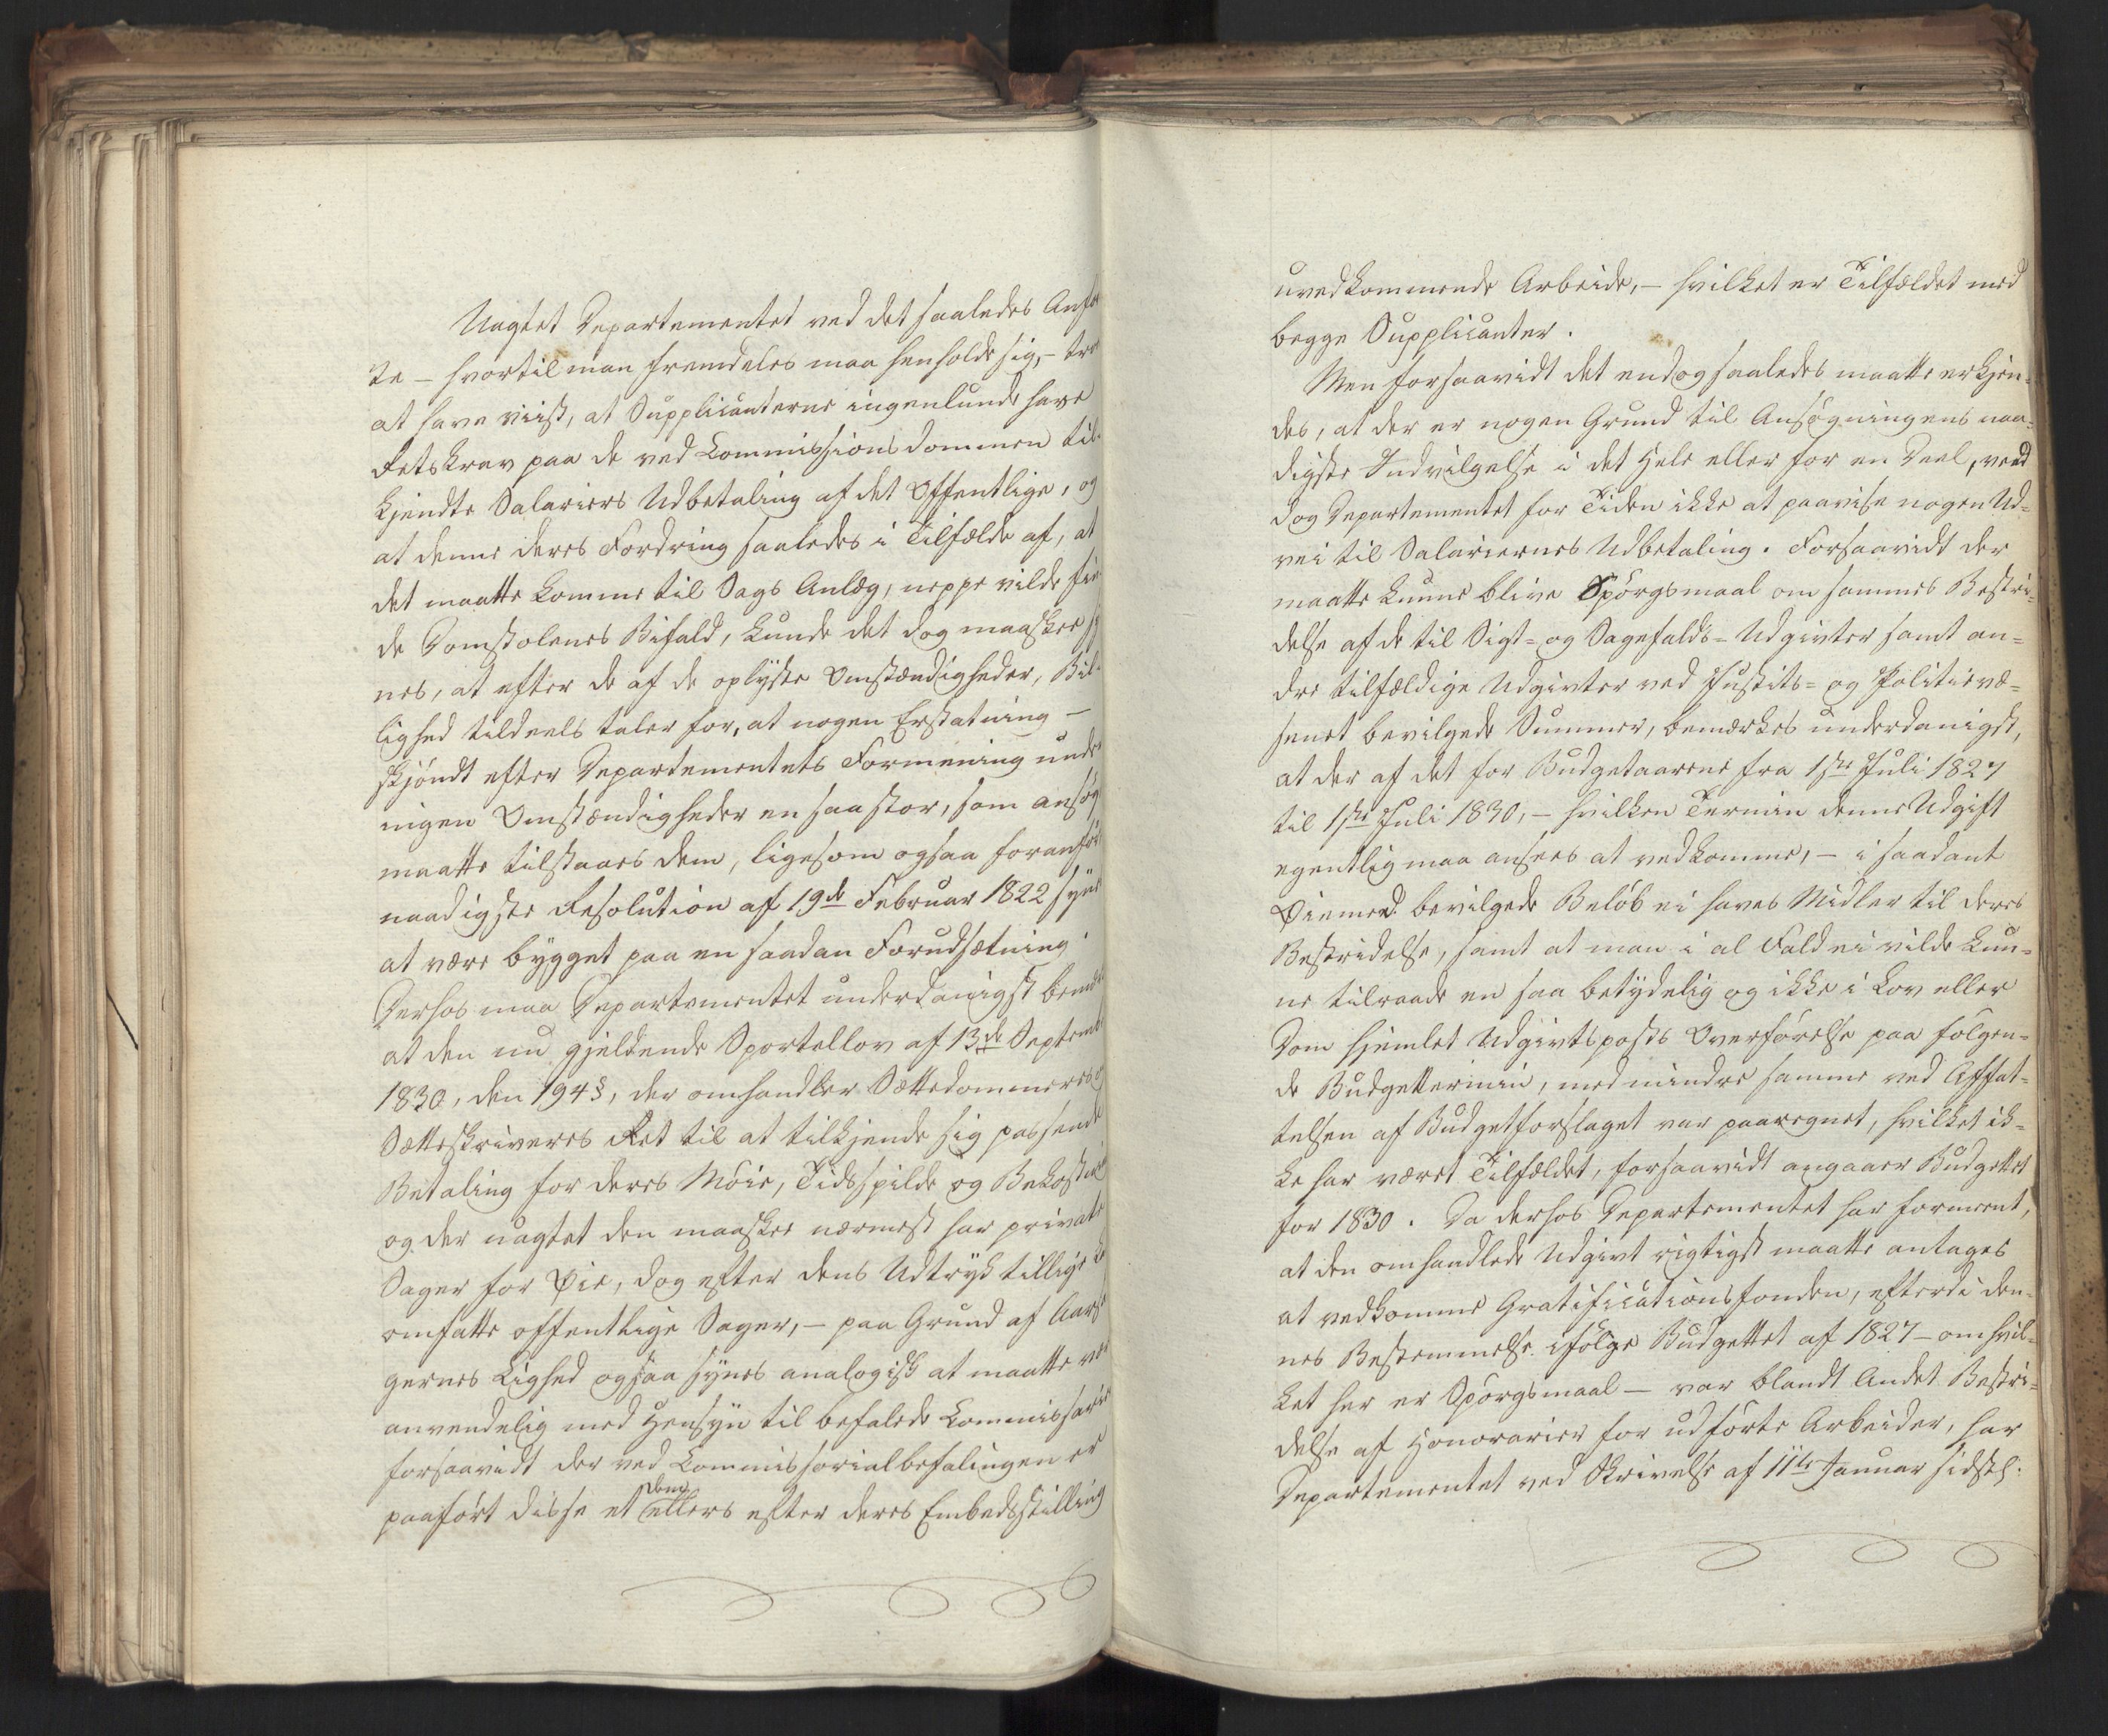 Uagtet Departementet ved det saaledes Anfør
te – hvortil man fremdeles maa henholde sig, – tro
at have viist, at Supplicanterne ingenlunde have
Retskrav paa de ved Commissionsdommen til-
kjendte Salariers Udbetaling af det Offentlige, og
at denne deres Fordring saaledes i Tilfælde af, at
det maatte komme til Sags Anlæg, neppe vilde fin
de Domstolenes Bifald, kunde det dog maaskee sy
nes, at efter de af de oplyste Omstændigheder, Bil-
lighed tildeels taler for, at nogen Erstatning –
skjøndt efter Departementets Formening under
ingen Omstændigheder en saa stor, som ansøgt
maatte tilstaaes dem, ligesom ogsaa foranført
naadigste Resolution af 19de Februar 1822 syne
at være bygget paa en saadan Forudsætning.
Derhos maa Departementet underdanigst bemær
at den nu gjeldende Sportellov af 13de Septemb
1830, den 194 §, der omhandler Sættedommeres og
Sætteskriveres Ret til at tilkjende sig passende
Betaling for deres Møie, Tidsspilde og Bekostnin
og der uagtet den maaskee nærmest har private
Sager for Øie, dog efter dens Udtryk tillige ka
omfatte offentlige Sager, – paa Grund af Aarsa
gernes Lighed ogsaa synes analogisk at maatte væ
anvendelig med Hensyn til befalede Commissarier
forsaavidt der ved Commissorialbefalingen er
paaført disse et dem ellers efter deres Embedsstilling
uvedkommende Arbeide, – hvilket er Tilfældet med
begge Supplicanter.
Men forsaavidt det endog saaledes maatte erkjen-
des, at der er nogen Grund til Ansøgningens naa-
digste Indvilgelse i det Hele eller for en Deel, veed
dog Departementet for Tiden ikke at paavise nogen Ud-
vei til Salariernes Udbetaling. Forsaavidt der
maatte kunne blive Spørgsmaal om sammes Bestri-
delse af de til Sigt- og Sagefalds-Udgivter samt an-
dre tilfældige Udgivter ved Justits- og Politievæ-
senet bevilgede Summer, bemærkes underdanigst,
at der af det for Budgetaarene fra 1ste Juli 1827
til 1ste Juli 1830, – hvilken Termin denne Udgift
egentlig maa ansees at vedkomme, – i saadant
Øiemed bevilgede Beløb ei haves Midler til deres
Bestridelse, samt at man i al Fald ei vilde kun-
ne tilraade en saa betydelig og ikke i Lov eller
Dom hjemlet Udgivtsposts Overførelse paa følgen-
de Budgettermin, med mindre samme ved Affat-
telsen af Budgetforslaget var paaregnet, hvilket ik-
ke har været Tilfældet, forsaavidt angaaer Budgettet
for 1830. Da derhos Departementet har formeent,
at den omhandlede Udgivt rigtigst maatte antages
at vedkomme Gratificationsfonden, efterdi den-
nes Bestemmelse ifølge Budgettet af 1827 – om hvil-
ket her er Spørgsmaal – var blandt Andet Bestri-
delse af Honorarier for udførte Arbeider, har
Departementet ved Skrivelse af 11te Januar sidstl.